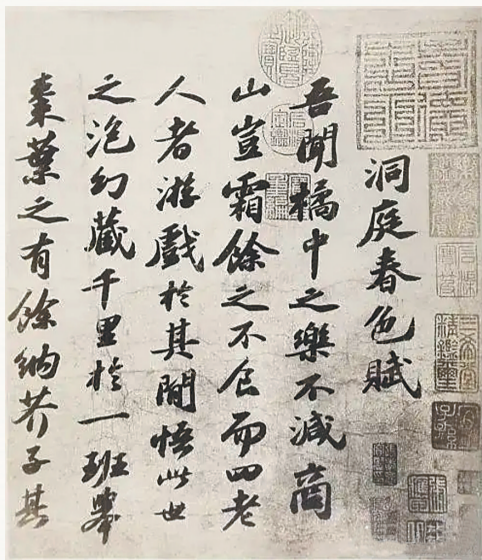 洞庭春色賦
吾聞橘中之樂不減商
山豈霜餘之不食而四老
人者游戲於其間悟此世
之泡幻藏千里於一班舉
棗葉之有餘納芥子其